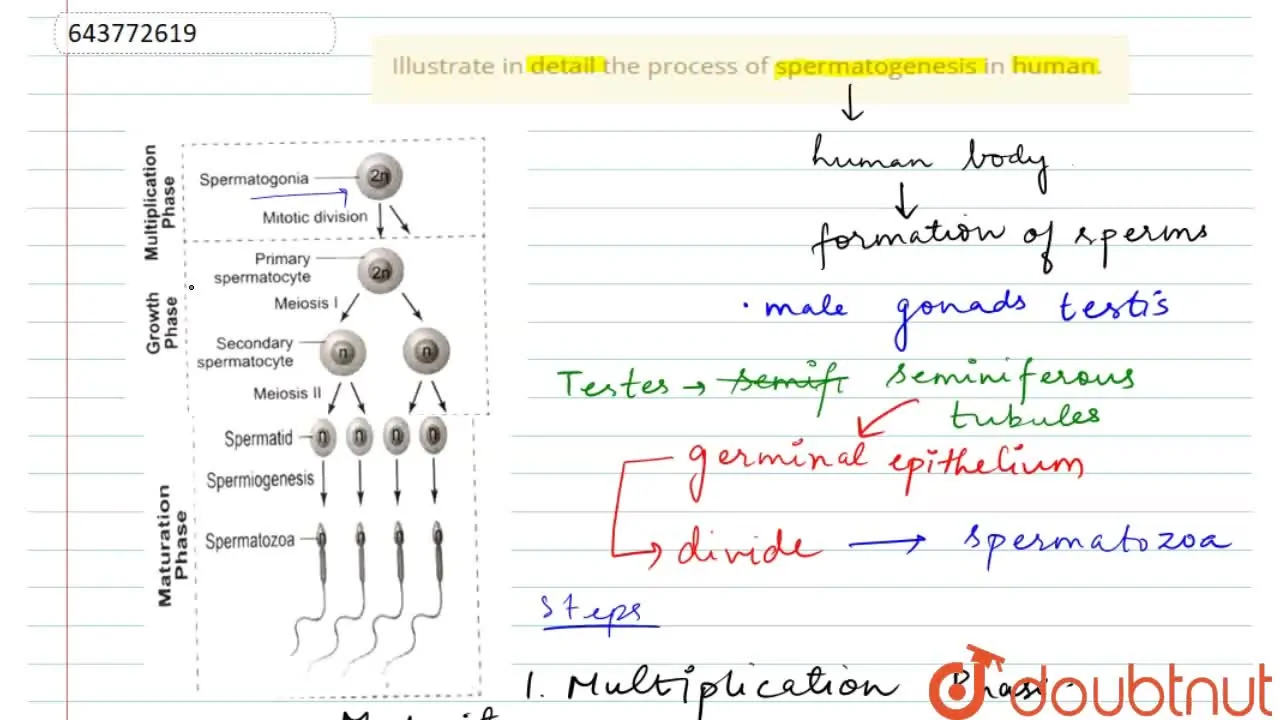 643772619
Illustrate in detail the process of spermatogenesis in human.
human body
formation of sperms
· male gonads testis
Testes → semift seminiferous
tubules
germinal epithelium
divide → spermatozoa
Steps
1. Multiplication Phase
Multiplication
Phase
Spermatogonia
2n
Mitotic division
Growth
Phase
Primary
spermatocyte
2n
Meiosis I
Secondary
spermatocyte
n
n
Meiosis II
Maturation
Phase
Spermatid
n
n
n
n
Spermiogenesis
Spermatozoa
doubtnut